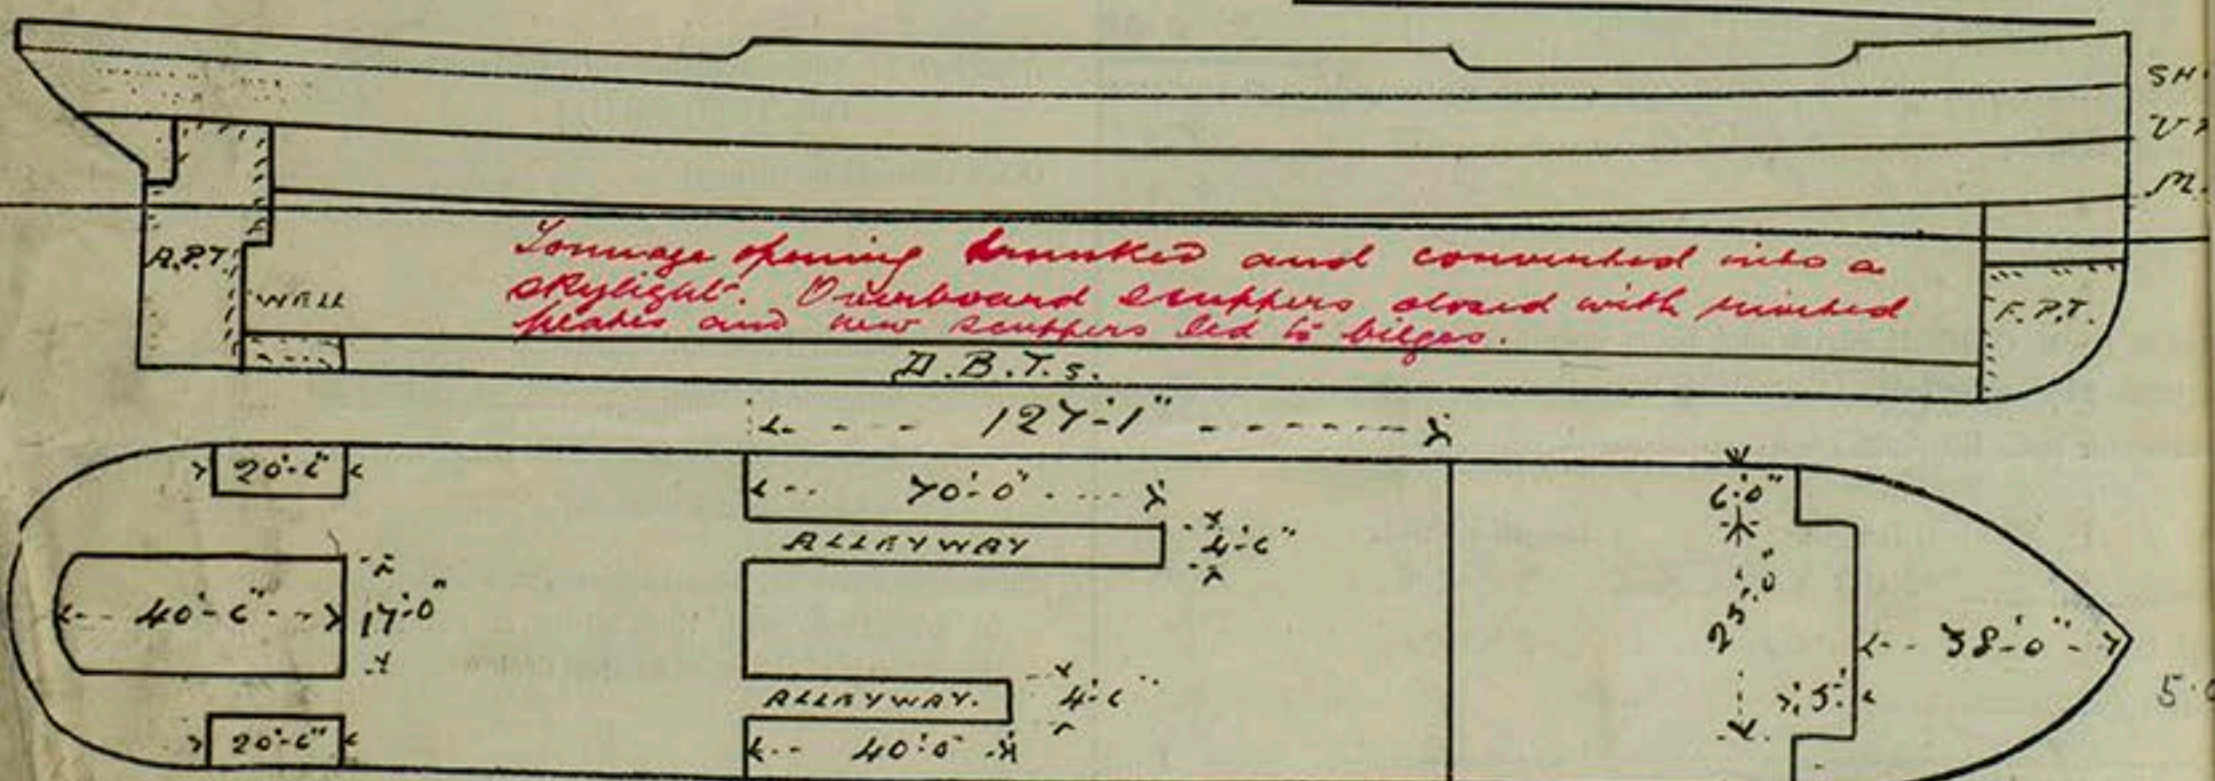 SH
A.P.T.
WELL
Tonnage opening trunked and converted into a
skylight. Overboard scuppers closed with riveted
plates and new scuppers led to bilges.
F.P.T.
D.B.T.s.
127'-1"
20'-6"
70'-0"
6'-0"
ALLEYWAY
4'-6"
40'-6"
17'-0"
25'-0"
38'-0"
ALLEYWAY.
4'-6"
5'
5'
20'-6"
40'-0"